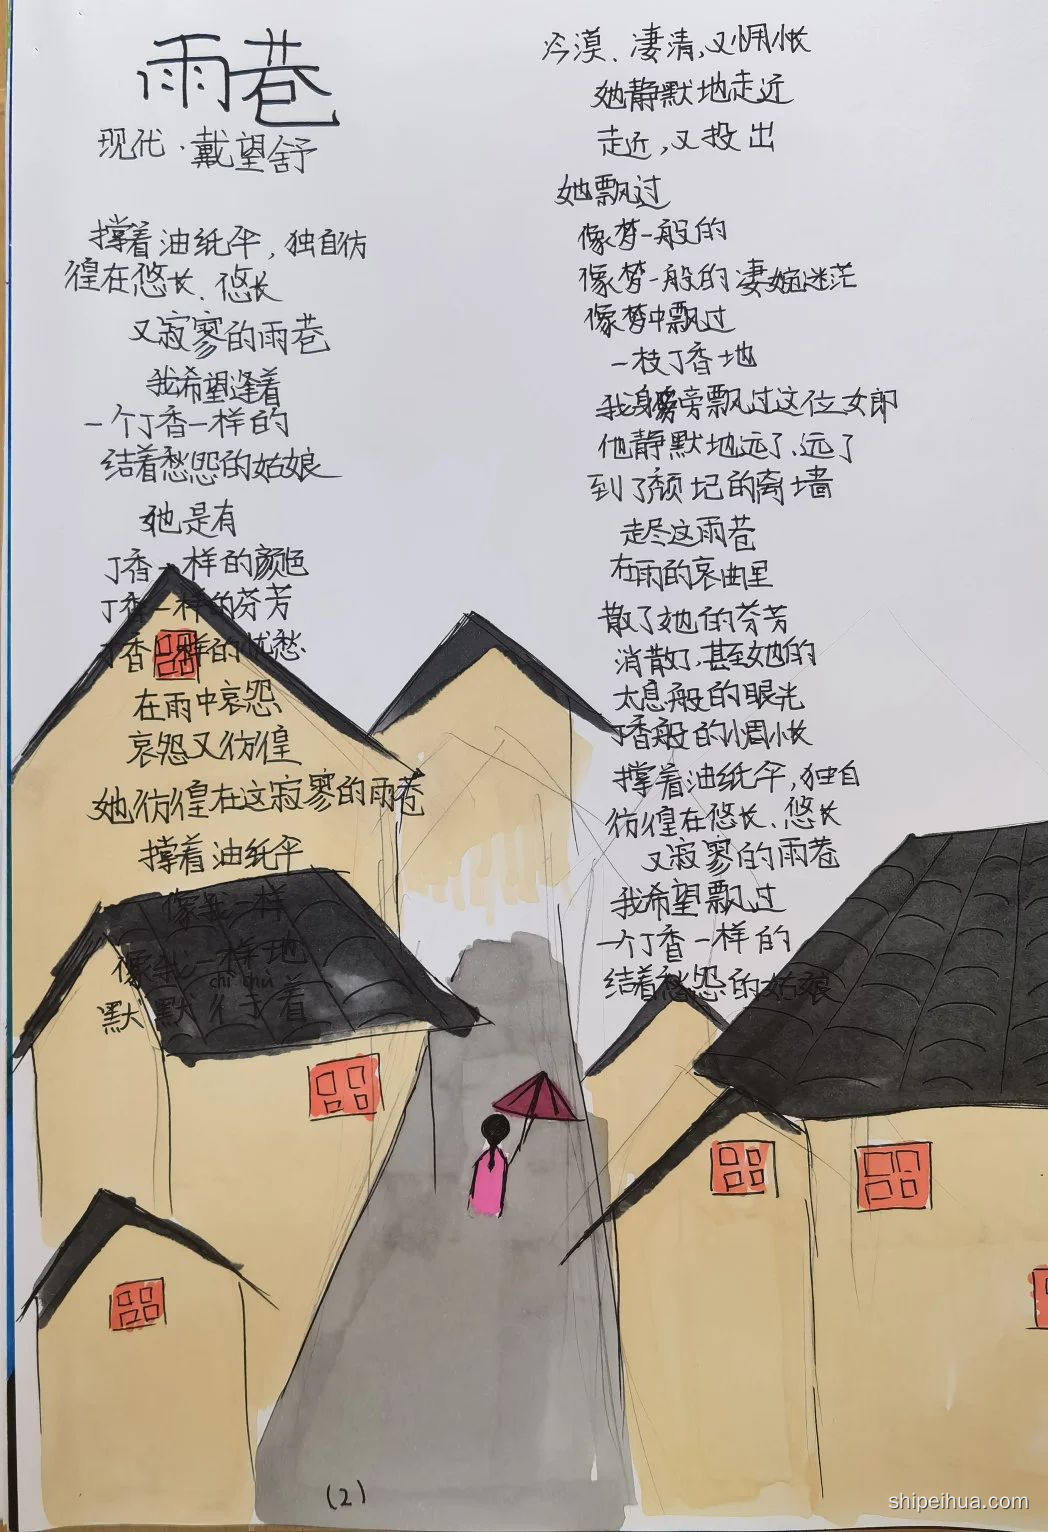 雨巷
现代·戴望舒
撑着油纸伞，独自彷
徨在悠长、悠长
又寂寥的雨巷
我希望逢着
一个丁香一样的
结着愁怨的姑娘
她是有
丁香一样的颜色
丁香一样的芬芳
丁香一样的忧愁
在雨中哀怨
哀怨又彷徨
她彷徨在这寂寥的雨巷
撑着油纸伞
像我一样
像我一样地
chì chù
默默彳亍着
冷漠、凄清，又惆怅
她静默地走近
走近，又投出
她飘过
像梦一般的
像梦一般的凄婉迷茫
像梦中飘过
一枝丁香地
我身旁飘过这位女郎
他静默地远了、远了
到了颓圮的离墙
走尽这雨巷
在雨的哀曲里
散了她的芬芳
消散了，甚至她的
太息般的眼光
丁香般的惆怅
撑着油纸伞，独自
彷徨在悠长、悠长
又寂寥的雨巷
我希望飘过
一个丁香一样的
结着愁怨的姑娘
(2)
shipeihua.com